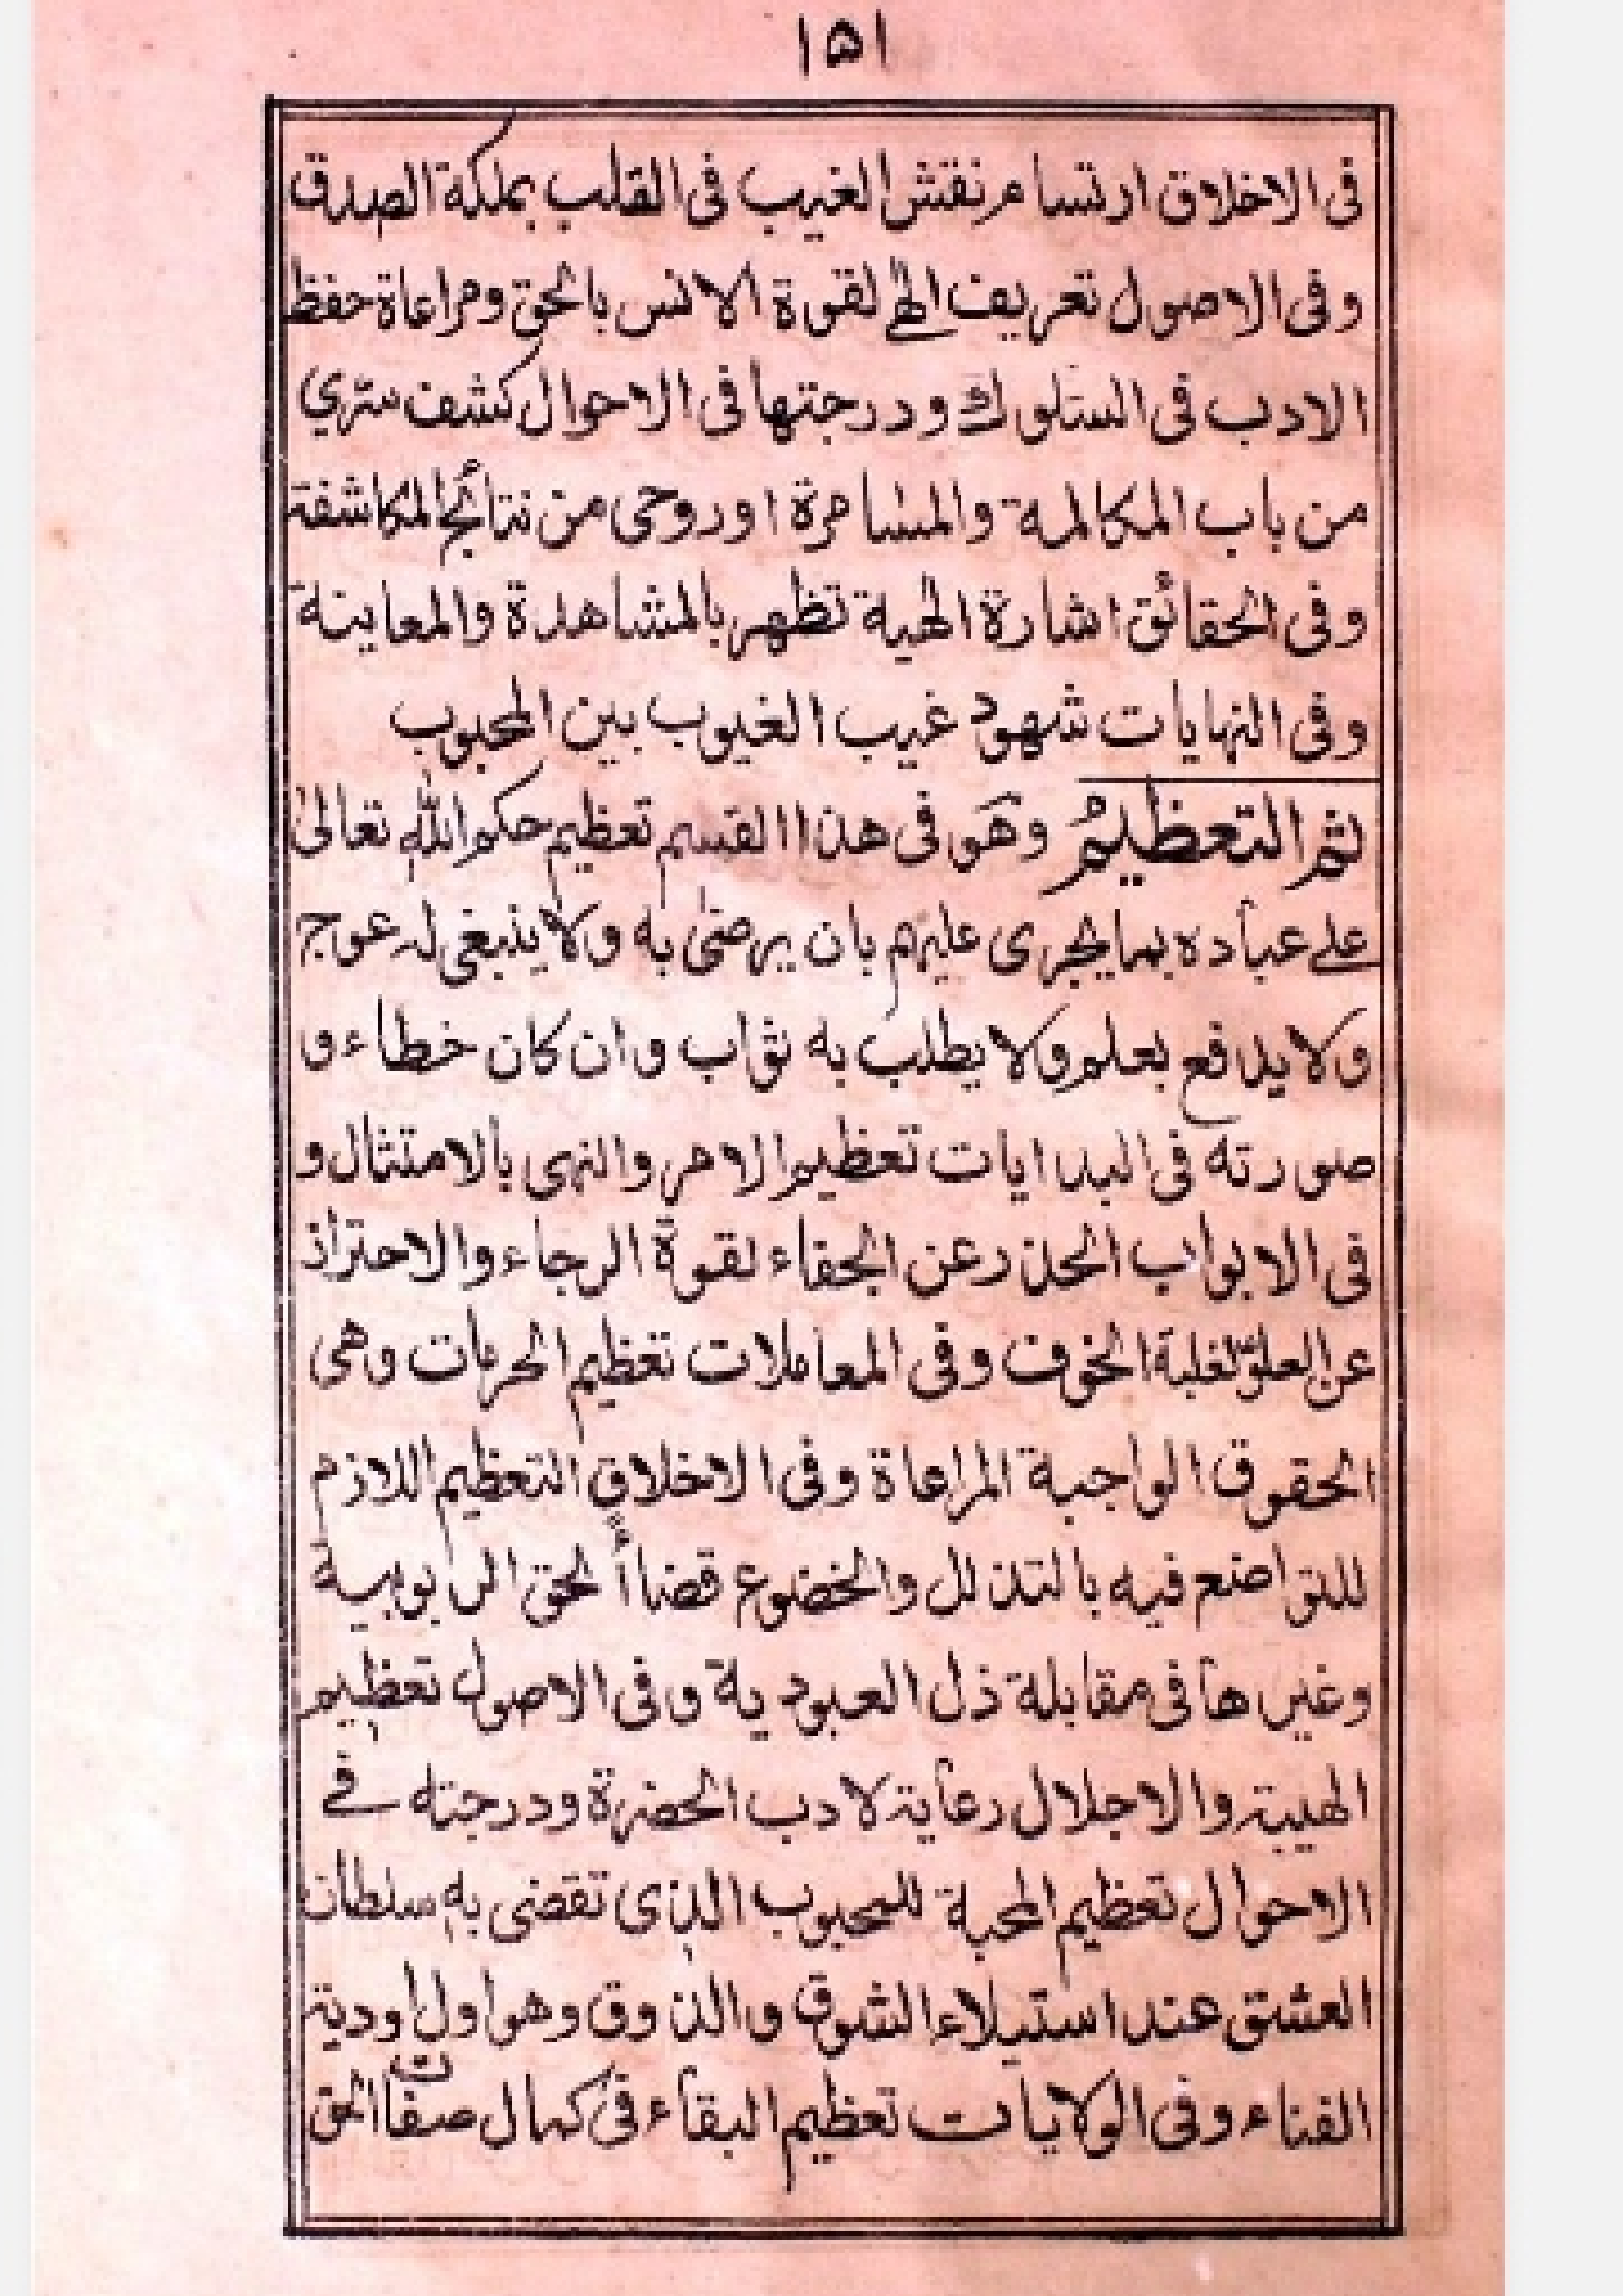 ١٥١
فى الاخلاق ارتسام نقش الغيب فى القلب بملكة الصدق
وفى الاصول تعريف الٰهى لقوة الانس بالحق ومراعاة حفظ
الادب فى السلوك ودرجتها فى الاحوال كشف سّرى
من باب المكالمة والمسامرة او روحى من نتائج المكاشفة
وفى الحقائق اشارة الٰهية تظهر بالمشاهدة والمعاينة
وفى النهايات شهود غيب الغيوب بين المحبوب
ثم التعظيمُ وهَو فى هذا القسم تعظيم حكم اللّٰه تعالىٰ
على عباده بما يجرى عليهم بان يرضىٰ به ولا ينبغى له عوج
ولا يدافع بعلم ولا يطلب به ثواب وان كان خطاء و
صورته فى البدايات تعظيم الامر والنهى بالامتثال و
فى الابواب الحذر عن الجفاء لقوة الرجاء والاحتراز
عن العلوّ لغلبة الخوف وفى المعاملات تعظيم الحرمات وهى
الحقوق الواجبة المراعاة وفى الاخلاق التعظيم اللازم
للتواضع فيه بالتذلل والخضوع قضاأً لحق الربوبية
وغيرها فى مقابلة ذل العبودية وفى الاصول تعظيم
الهيبة والاجلال رعاية لادب الحضرة ودرجته فى
الاحوال تعظيم المحبة للمحبوب الذى تقضى به سلطان
العشق عند استيلاء الشوق والذوق وهو اول اودية
الفناء وفى الولايات تعظيم البقاء فى كمال صفات الحق